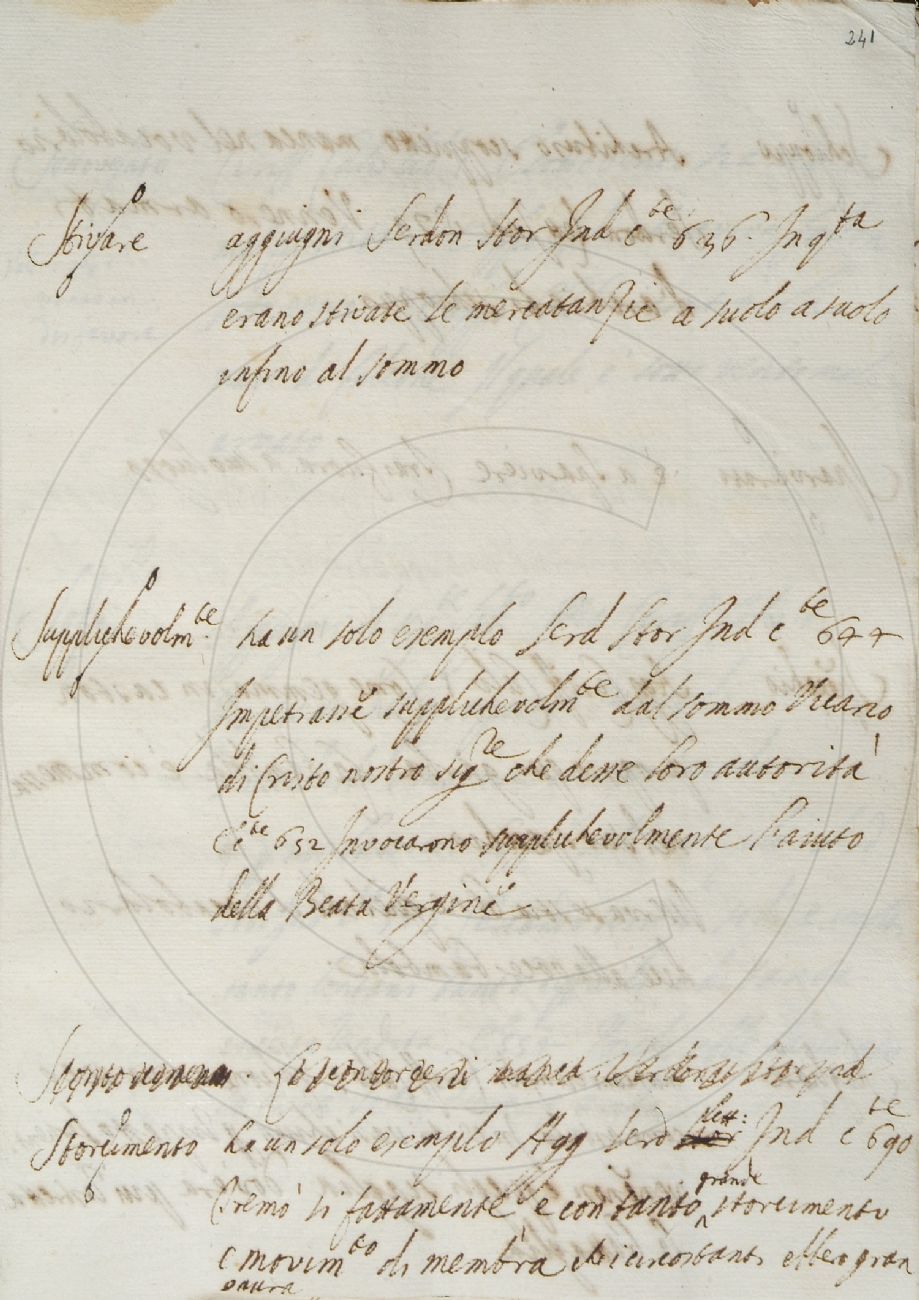 241
Stivare aggiugni Serdon Stor Ind c te 636. In q ta
erano stivate le mercatanzie a suolo a suolo
infino al sommo
Supplichevolm te ha un solo esemplo Serd Stor Ind c te 644
Impetrasse supplichevolm te dal sommo Vicario
di Cristo nostro sig re che desse loro autorità
E c te 652 Invocarono supplichevolmente l'aiuto
della Beata Vergine
Storcimento ha un solo esemplo Agg Serd Stor Lett: Ind c te 690
Tremò sì fattamente e con tanto grande storcimento
e movim to di membra che i circostanti ebber gran
paura